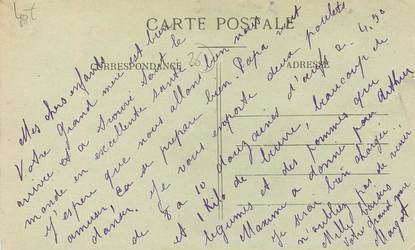 4pt
CARTE POSTALE
CORRESPONDANCE
ADRESSE
26
Mes chers enfants
Votre Grand mère est bien
arrivée et a trouvé tout le
monde en excellente santé
J'espère que nous allons bien nous
amuser, Ca se prépare bien. Papa vient
Je vous emporte deux poulets
de 8 a 10 douzaines d'oeufs a 4.50
et 1 kilo de beurre, beaucoup de
legumes et des pommes que
Maxime a donné pour Arthur
Je serai bien chargée
n'oubliez pas de venir
Mille baisers
Votre grand mère
Margot